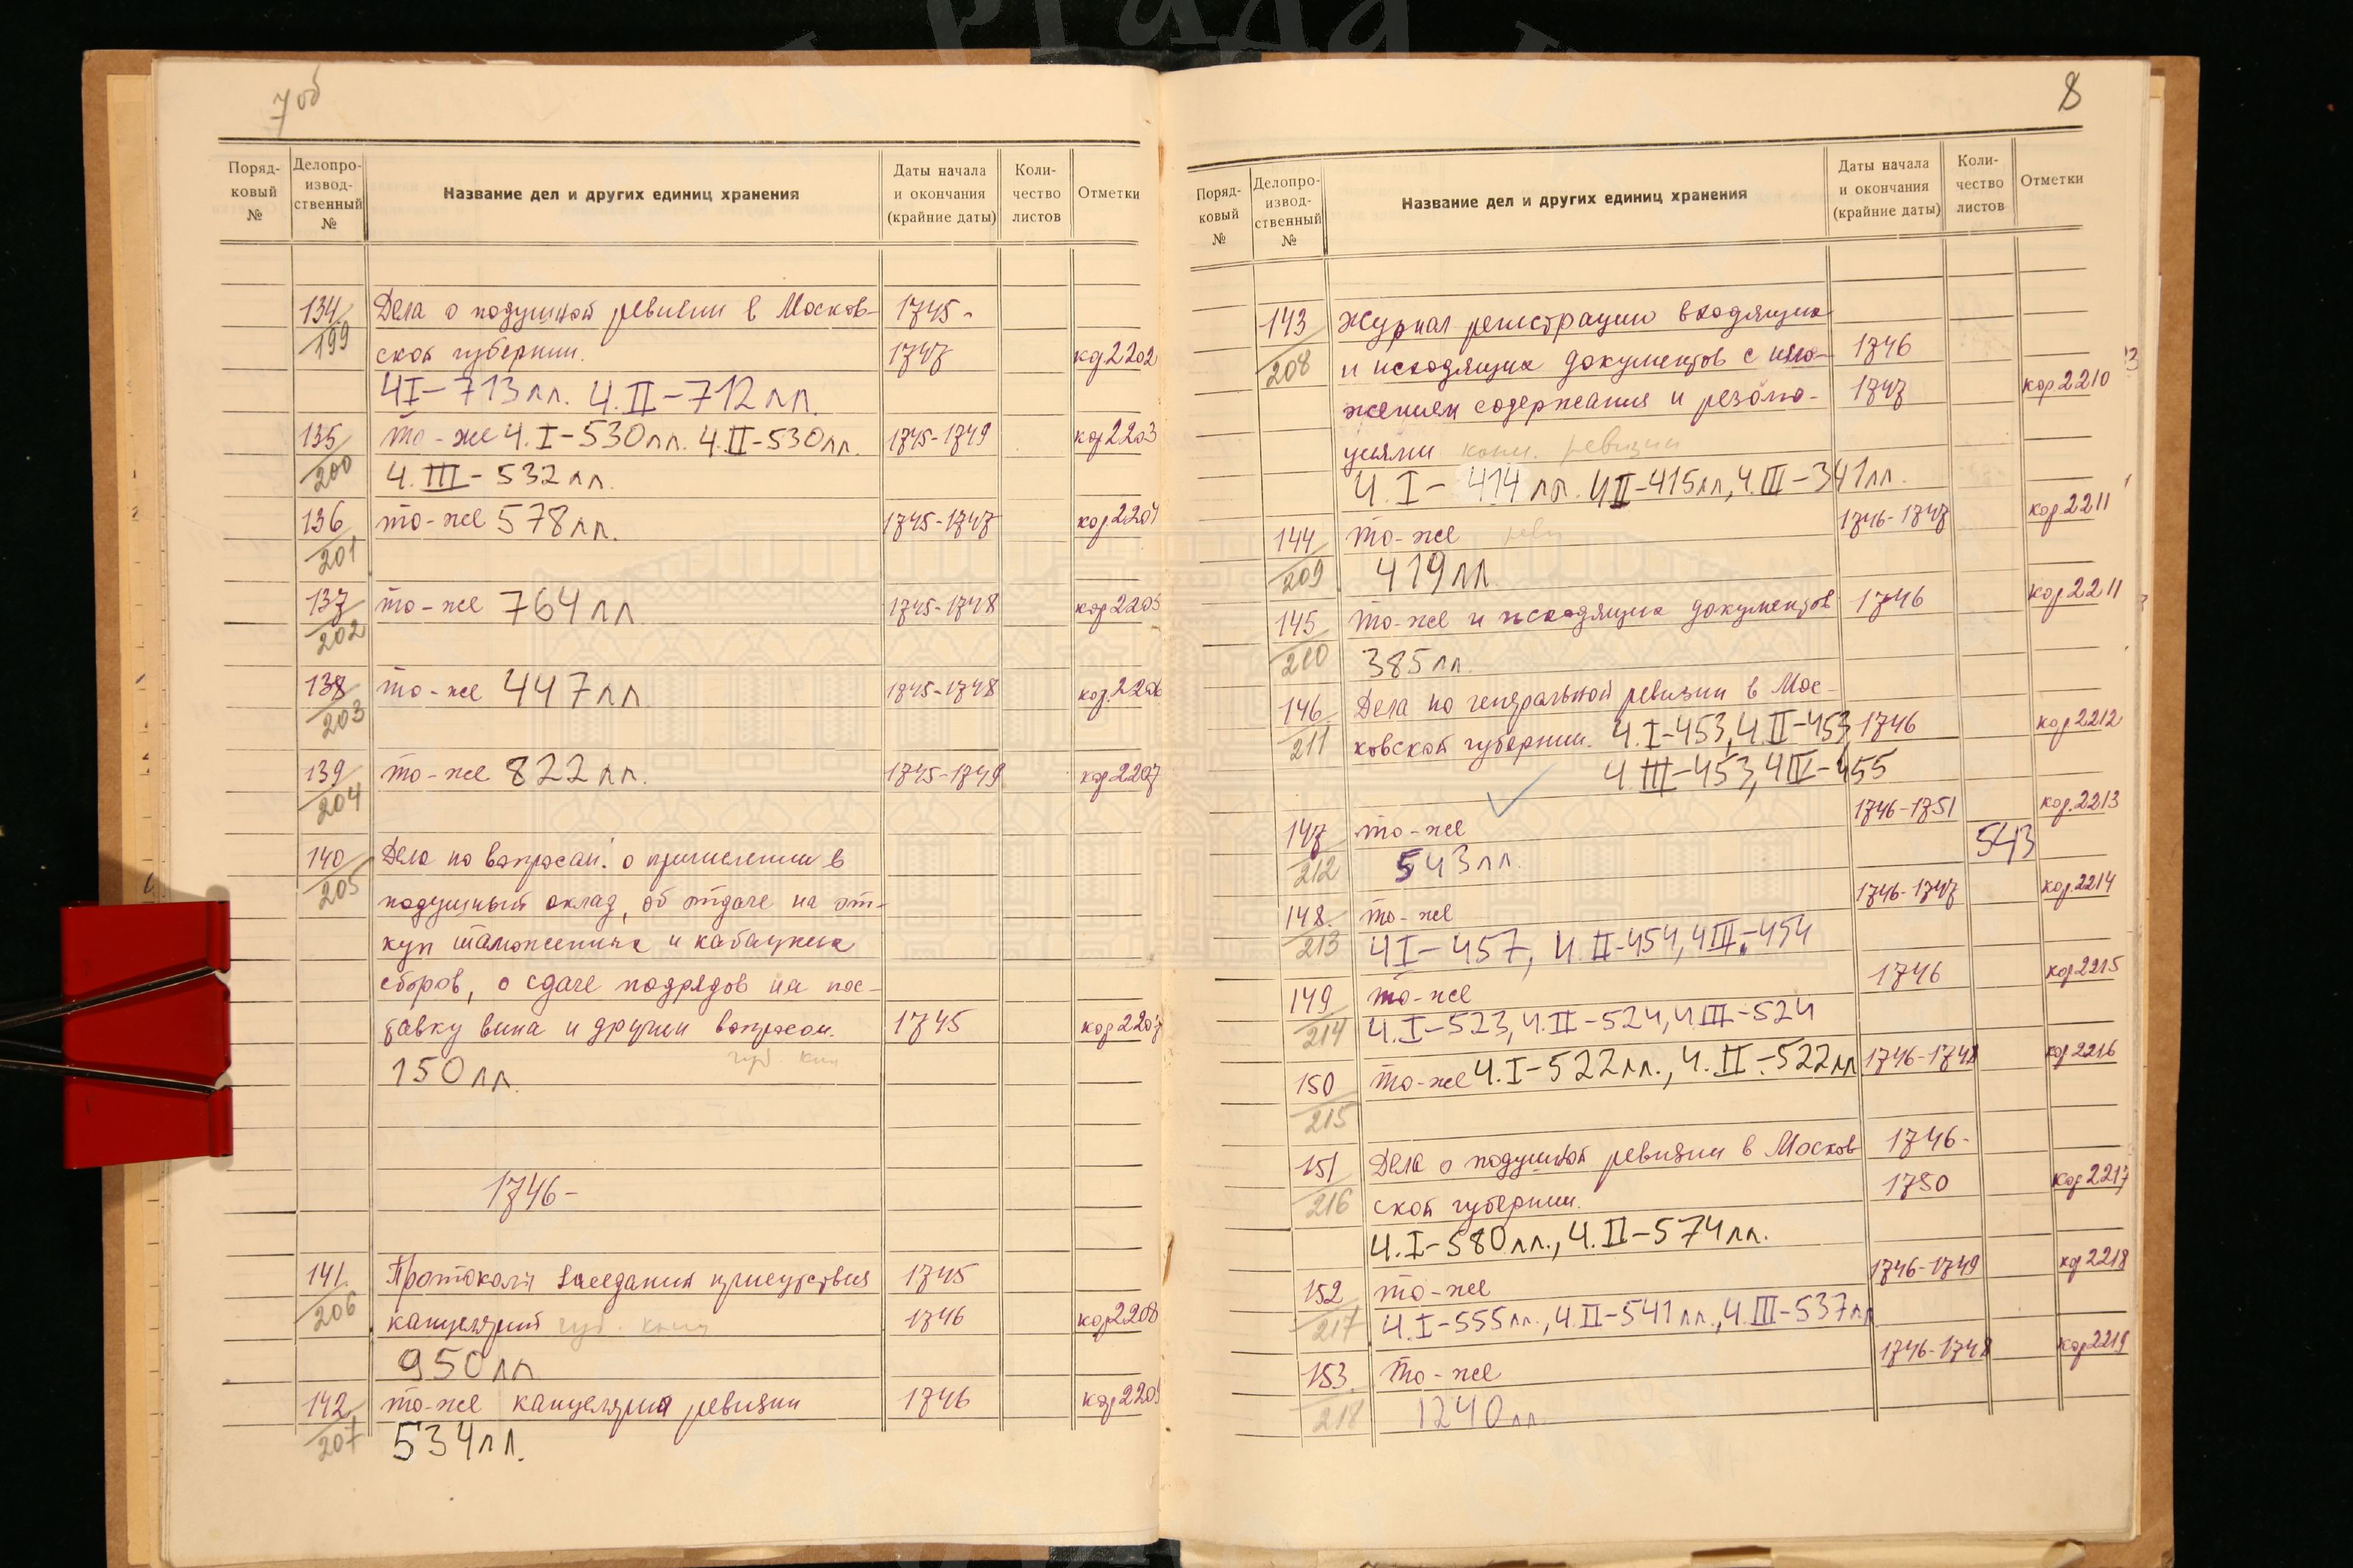 7 об
Поряд-ковый № Делопро-извод-ственный № Название дел и других единиц хранения Даты начала и окончания (крайние даты) Коли-чество листов Отметки
134 Дела о подушной ревизии в Москов- 1745-
199 ской губернии. 1747 кор 2202
Ч I – 713 лл. Ч. II – 712 лл.
135 то-же Ч. I – 530 лл. Ч. II – 530 лл. 1745-1749 кор 2203
200 Ч. III – 532 лл.
136 то-же 578 лл. 1745-1747 кор. 2204
201
137 то-же 764 лл 1745-1748 кор 2205
202
138 то-же 447 лл 1745-1748 кор. 2206
203
139 то-же 822 лл. 1745-1749 кор 2207
204
140 Дела по вопросам: о причислении в
205 подушный оклад, об отдаче на от-
куп таможенных и кабацких
сборов, о сдаче подрядов на пос-
тавку вина и другим вопросам. 1745 кор 2207
150 лл. губ. кан
1746-
141. Протоколы заседания присутствия 1745
206 канцелярий губ. канц 1746 кор 2208
950 лл
142 то-же канцелярия ревизии 1746 кор 220
207 534 лл.
8
Поряд-ковый № Делопро-извод-ственный № Название дел и других единиц хранения Даты начала и окончания (крайние даты) Коли-чество листов Отметки
143 Журнал регистрации входящих
208 и исходящих документов с изло- 1746
жением содержания и резолю- 1747 кор 2210
циями канц. ревизии
Ч. I – 414 лл. Ч II – 415 лл, Ч. III – 341 лл.
144 то-же реви 1746-1747 кор 2211
209 419 лл
145 то-же и исходящих документов 1746 кор 2211
210 385 лл.
146 Дела по генеральной ревизии в Мос-
211 ковской губернии. Ч. I – 453, Ч. II – 453, 1746 кор 2212
Ч III – 453, Ч IV – 455
147 то-же 1746-1751 кор. 2213
212 543 лл. 543
148. то-же 1746-1747 кор. 2214
213 Ч I – 457, Ч. II – 454, Ч III – 454
149 то-же 1746 кор 2215
214 Ч. I – 523, Ч. II – 524, Ч. III – 524
150 то-же Ч. I – 522 лл., Ч. II – 522 лл 1746-1748 кор 2216
215
151 Дела о подушной ревизии в Москов 1746-
216 ской губернии. 1750 кор 2217
Ч. I – 580 лл., Ч. II – 574 лл.
152 то-же 1746-1749 кор 2218
217 Ч. I – 555 лл., Ч. II – 541 лл., Ч. III – 537 лл
153. то-же 1746-1748 кор 2219
218 1240 лл.